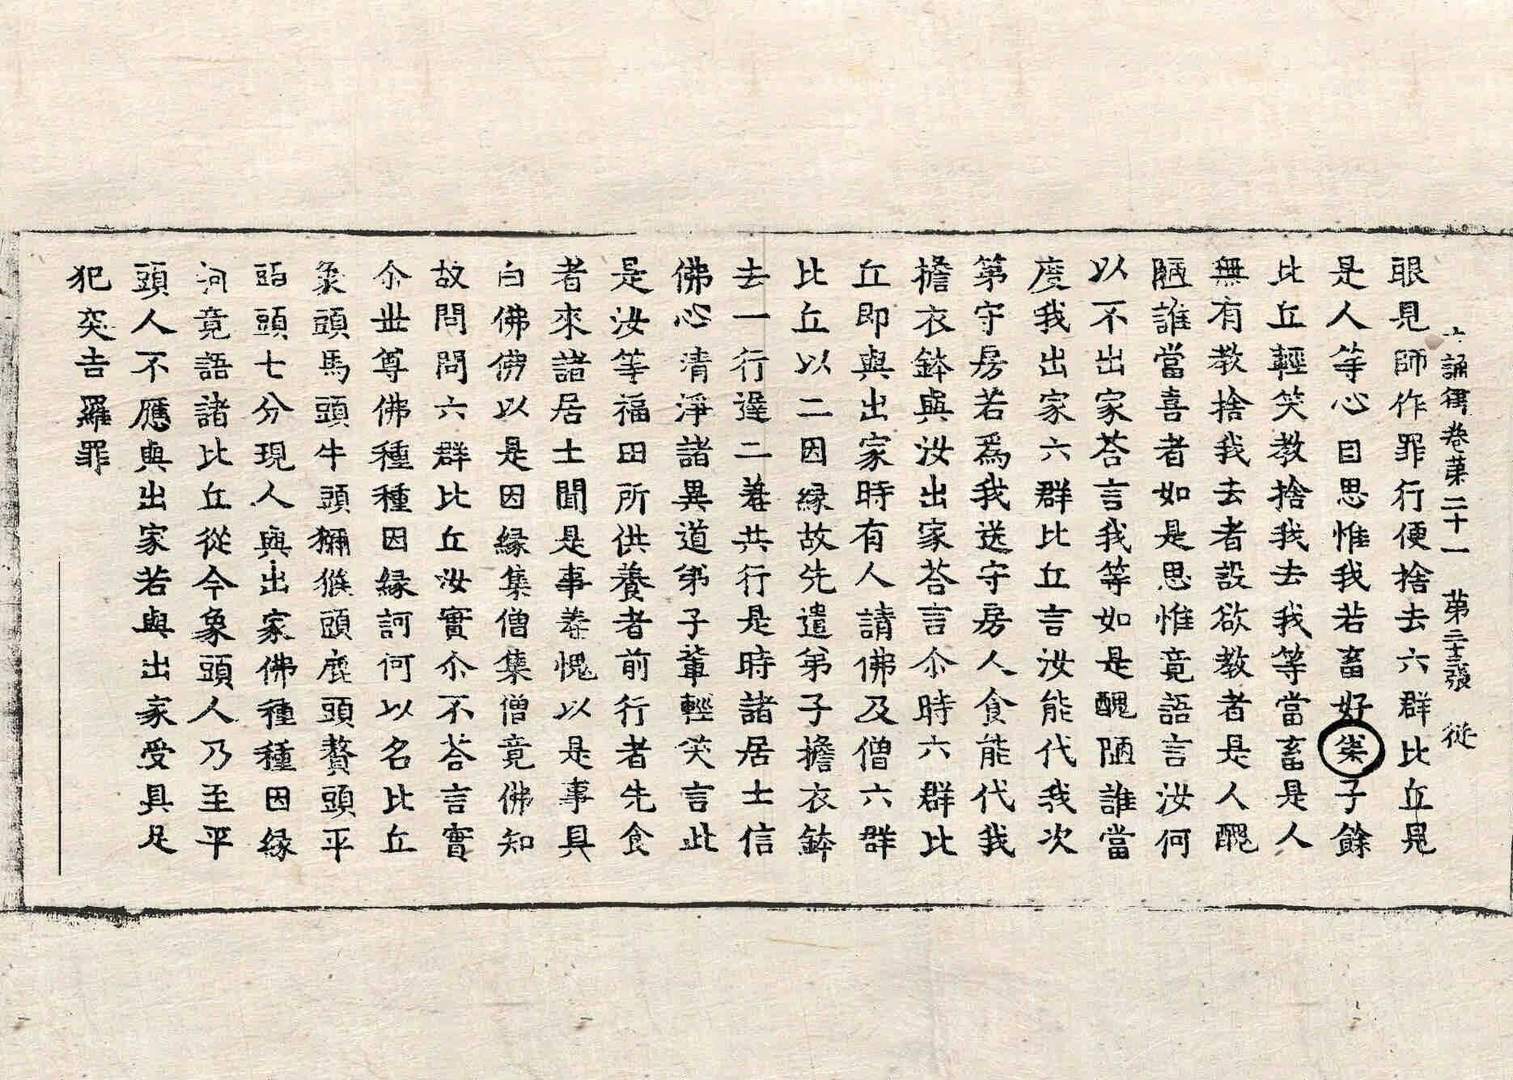 十誦律卷第二十一 第二十三張 從
眼見師作罪行便捨去六群比丘見
是人等心曰思惟我若畜好弟子餘
比丘輕笑教捨我去我等當畜是人
無有教捨我去者設欲教者是人醜
陋誰當喜者如是思惟竟語言汝何
以不出家荅言我等如是醜陋誰當
度我出家六群比丘言汝能代我次
第守房若爲我送守房人食能代我
擔衣鉢與汝出家荅言尒時六群比
丘即與出家時有人請佛及僧六群
比丘以二因緣故先遣弟子擔衣鉢
去一行逹二着共行是時諸居士信
佛心清淨諸異道弟子輩輕笑言此
是汝等福田所供養者前行者先食
者來諸居士聞是事羞愧以是事具
白佛佛以是因緣集僧集僧竟佛知
故問問六群比丘汝實尒不荅言實
尒世尊佛種種因緣訶何以名比丘
象頭馬頭牛頭獼猴頭鹿頭贅頭平
頭頭七分現人與出家佛種種因緣
訶竟語諸比丘從今象頭人乃至平
頭人不應與出家若與出家受具足
犯突吉羅罪